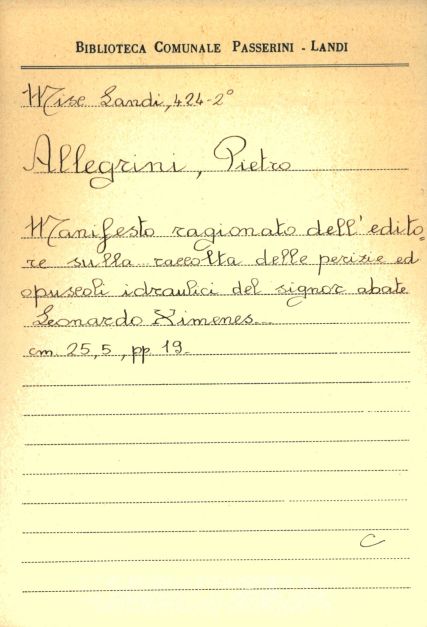 BIBLIOTECA COMUNALE PASSERINI - LANDI
Misc Landi, 424-2°
Allegrini, Pietro
Manifesto ragionato dell'edito-
re sulla raccolta delle perizie ed
opuscoli idraulici del signor abate
Leonardo Ximenes.
cm. 25,5, pp 19.
C